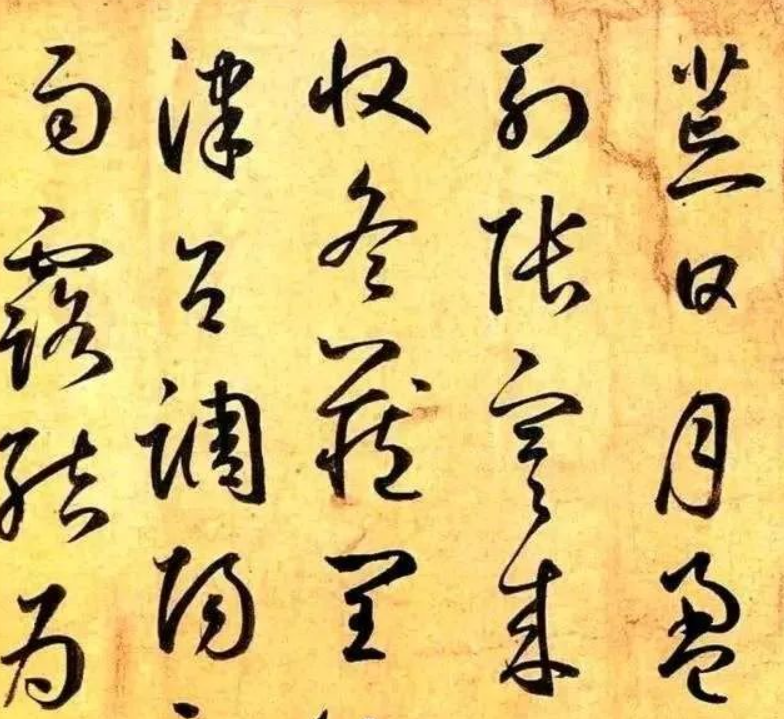 荒日月盈
列張寒來
收冬藏閏
律呂調陽
雨露結為